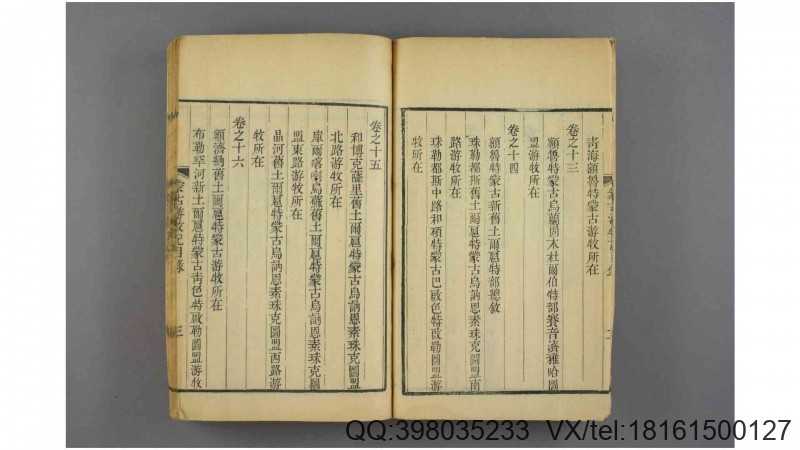 青海額魯特蒙古游牧所在
卷之十三
額魯特蒙古烏蘭固木杜爾伯特部賽音濟雅哈圖
盟游牧所在
卷之十四
額魯特蒙古新舊土爾扈特部總敘
珠勒都斯舊土爾扈特蒙古烏訥恩素珠克圖盟南
路游牧所在
珠勒都斯中路和碩特蒙古巴啟色特啟勒圖盟游
牧所在
卷之十五
和博克薩里舊土爾扈特蒙古烏訥恩素珠克圖盟
北路游牧所在
庫爾喀喇烏蘇舊土爾扈特蒙古烏訥恩素珠克圖
盟東路游牧所在
晶河舊土爾扈特蒙古烏訥恩素珠克圖盟西路游
牧所在
卷之十六
額濟納舊土爾扈特蒙古游牧所在
布勒罕河新土爾扈特蒙古青色特啟勒圖盟游牧
蒙古游牧記目錄
三
QQ:398035233 VX/tel:18161500127